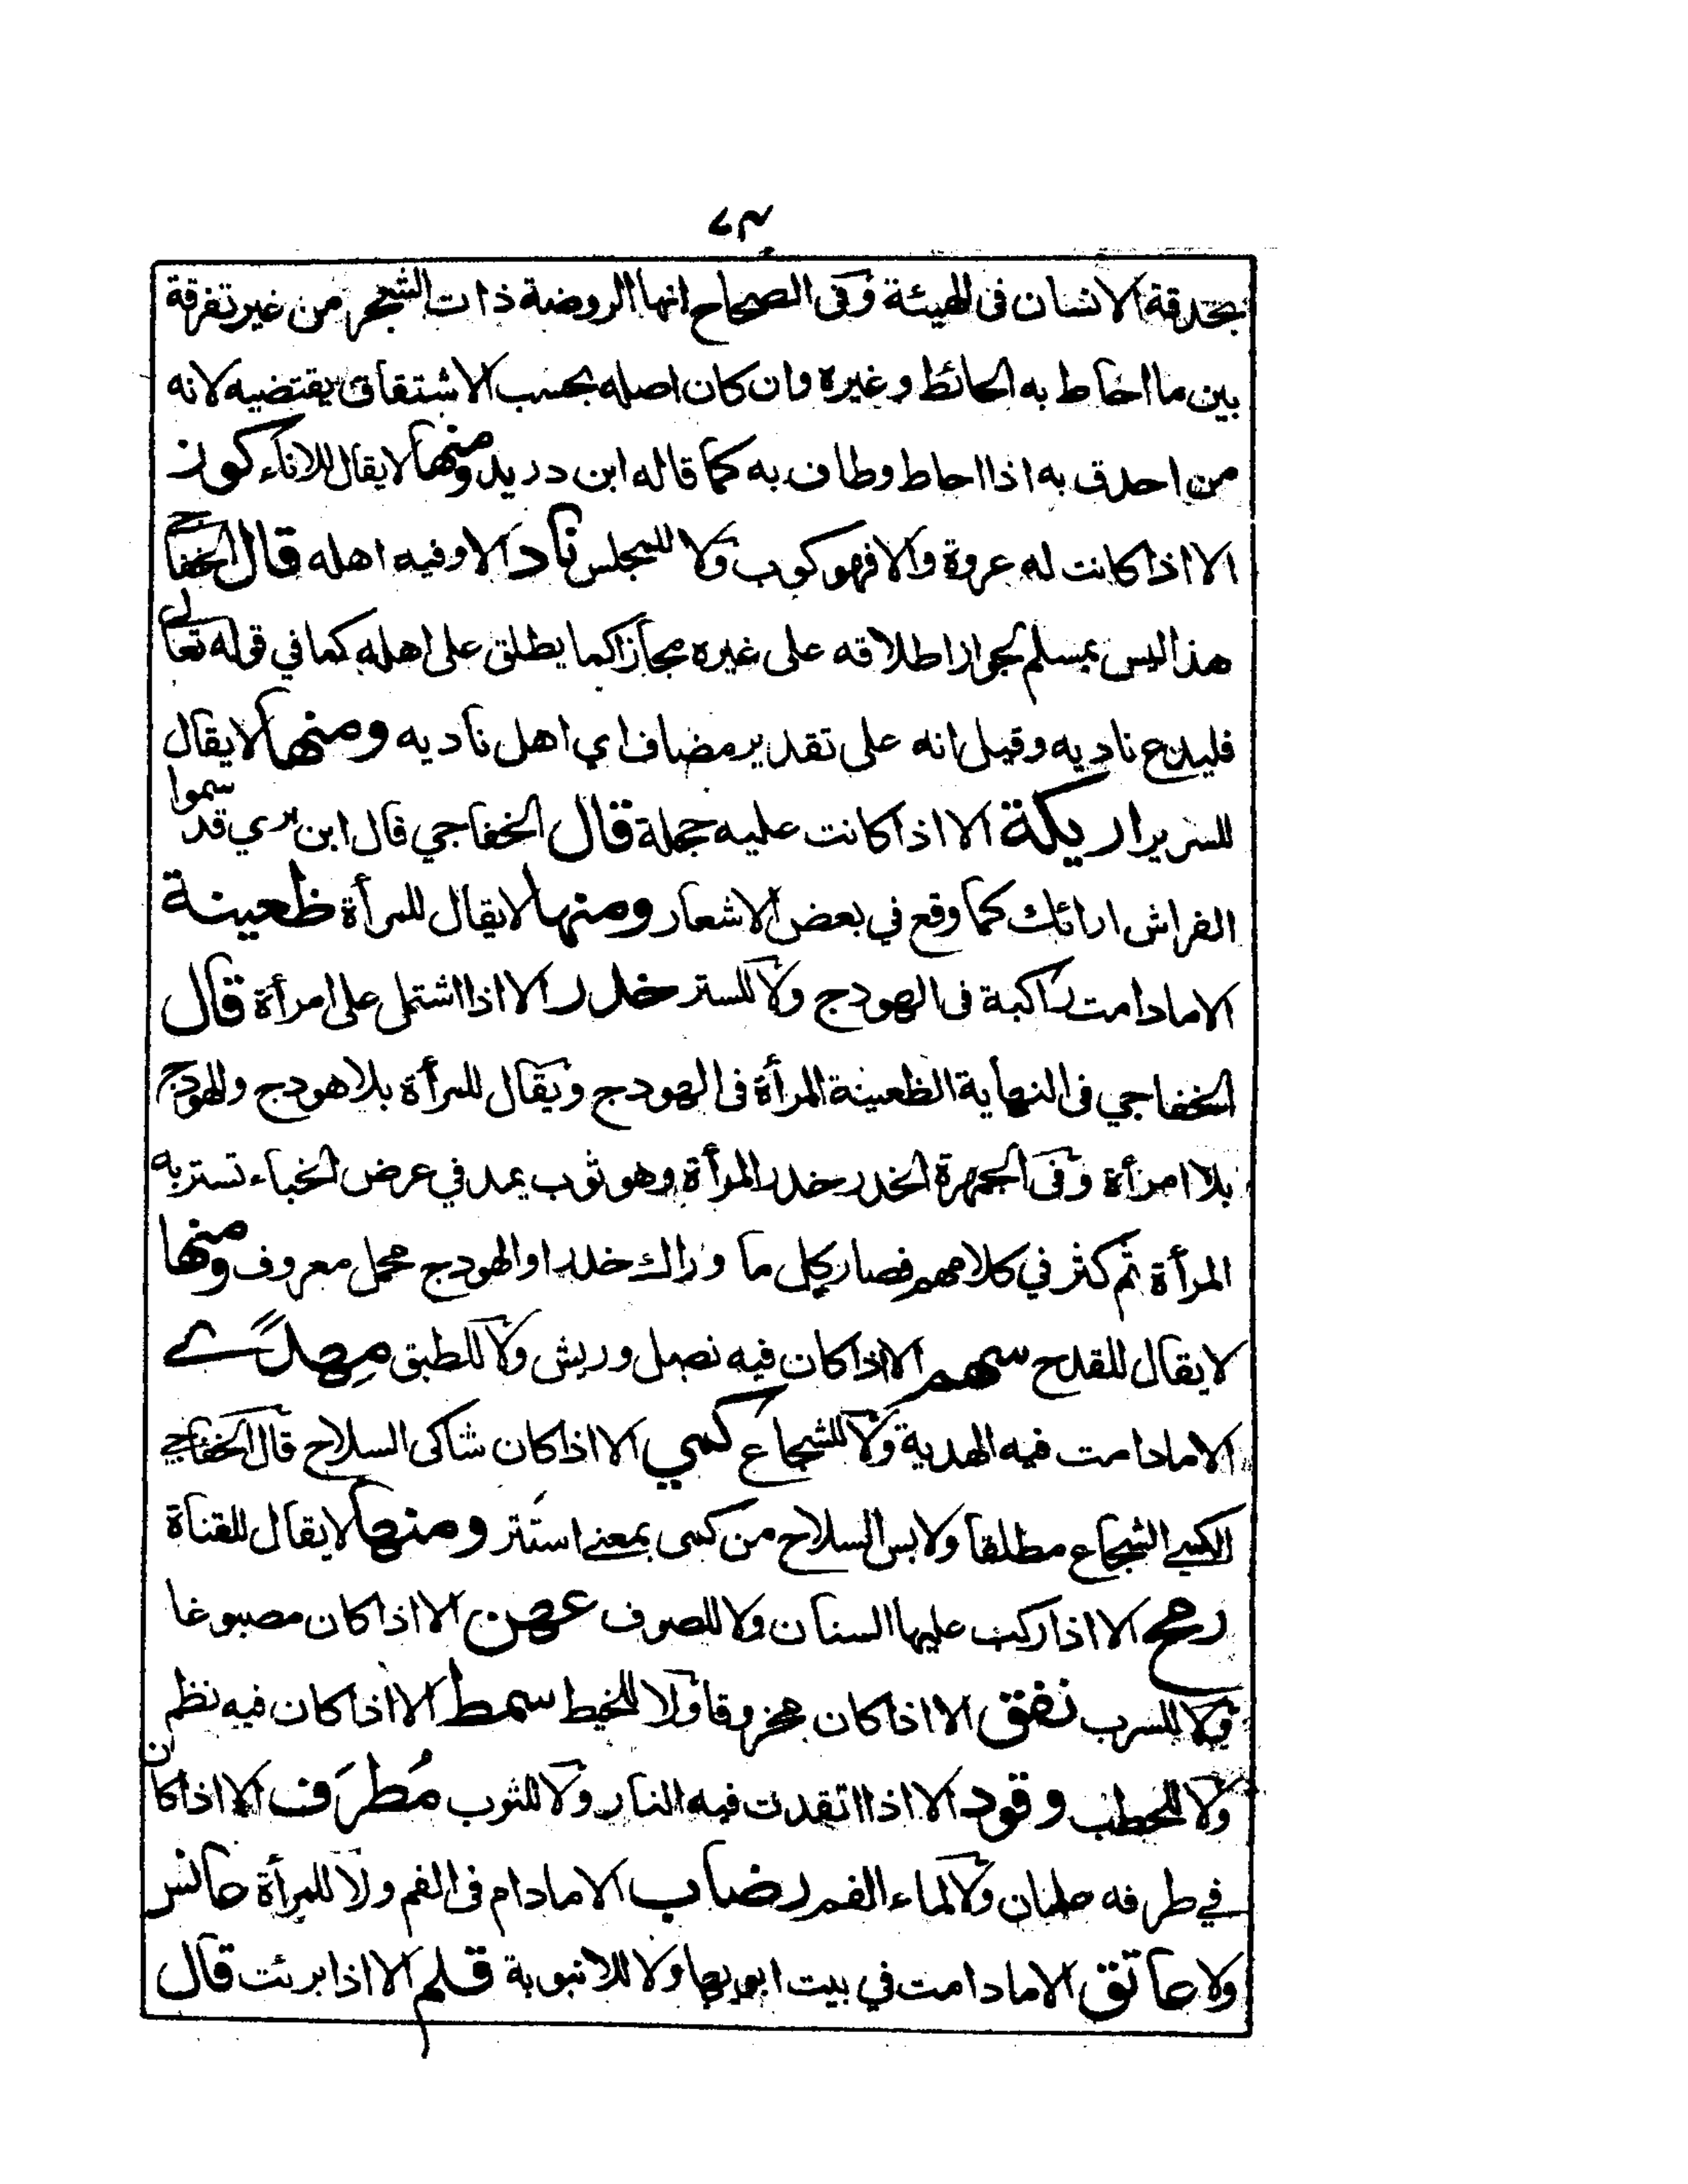 ٧٣
بحدقة الانسان فى الهيئة وفى الصحاح انها الروضة ذات الشجر من غير تفرقة
بين ما احاط به الحائط وغيره وان كان اصله بحسب الاشتقاق يقتضيه لانه
من احدق به اذا احاط وطاف به كما قاله ابن دريد ومنها لا يقال للاناء كوز
الا اذا كانت له عروة والا فهو كوب ولا للمجلس ناد الا وفيه اهله قال الخفاجي
هذا ليس بمسلم لجواز اطلاقه على غيره مجازا كما يطلق على اهله كما في قوله تعالى
فليدع ناديه وقيل انه على تقدير مضاف اي اهل ناديه ومنها لا يقال
للسرير اريكة الا اذا كانت عليه حجلة قال الخفاجي قال ابن بري قد سموا
الفراش ارائك كما وقع في بعض الاشعار ومنها لا يقال للمرأة ظعينة
الا ما دامت راكبة فى الهودج ولا للستر خدر الا اذا اشتمل على امرأة قال
الخفاجي فى النهاية الظعينة المرأة فى الهودج ويقال للمرأة بلا هودج وللهودج
بلا امرأة وفى الجمهرة الخدر خدر المرأة وهو ثوب يمد في عرض الخباء تستتر به
المرأة ثم كثر في كلامهم فصار كل ما وراك خدرا والهودج محمل معروف ومنها
لا يقال للقدح سهم الا اذا كان فيه نصل وريش ولا للطبق مِهدًے
الا ما دامت فيه الهدية ولا للشجاع كمي الا اذا كان شاكى السلاح قال الخفاجي
الكمي الشجاع مطلقا ولابس السلاح من كمى بمعنے استتر ومنها لا يقال للقناة
رمح الا اذا ركب عليها السنان ولا للصوف عهن الا اذا كان مصبوغا
ولا للسرب نفق الا اذا كان مخروقا ولا للخيط سمط الا اذا كان فيه نظم
ولا للحطب وقود الا اذا اتقدت فيه النار ولا للثوب مُطرَف الا اذا كان
في طرفه علمان ولا لماء الفم رضاب الا ما دام فى الفم ولا للمرأة عانس
ولا عاتق الا ما دامت في بيت ابويها ولا للانبوبة قلم الا اذا بريت قال